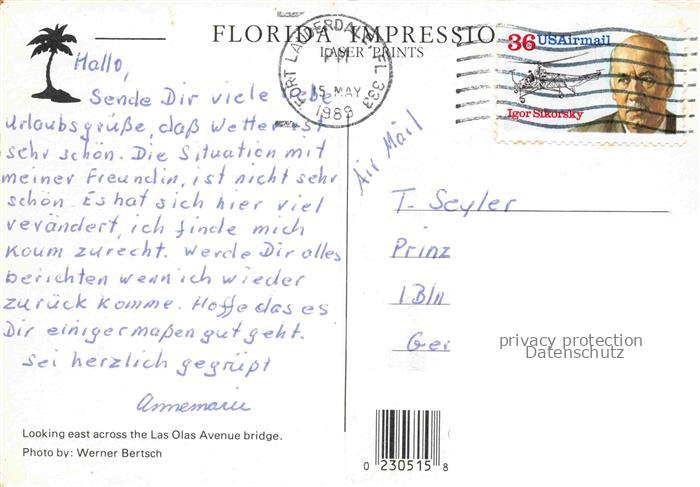 FLORIDA IMPRESSIO
LASER PRINTS
Hallo,
Sende Dir viele liebe
Urlaubsgrüße, daß Wetter ist
sehr schön. Die Situation mit
meiner Freundin, ist nicht sehr
schön. Es hat sich hier viel
verändert, ich finde mich
koum zurecht. Werde Dir alles
berichten wenn ich wieder
zurück komme. Hoffe das es
Dir einigermaßen gut geht.
Sei herzlich gegrüßt
Annemarie
Looking east across the Las Olas Avenue bridge.
Photo by: Werner Bertsch
FORT LAUDERDALE, FL 333
PM
15 MAY
1989
36 USAirmail
Igor Sikorsky
Air Mail
T. Seyler
Prinz
1Bln
Ger
privacy protection
Datenschutz
0 230515 8